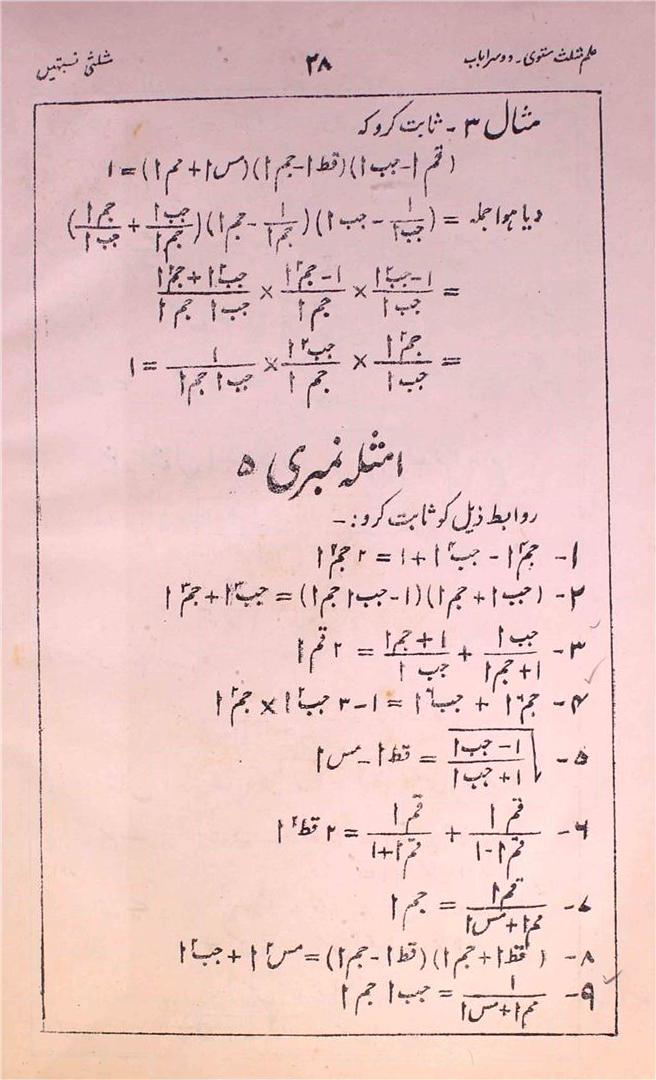 علم مثلث مستوی۔ دوسرا باب ۲۸ مثلثی نسبتیں
مثال ۳ ۔ ثابت کرو کہ
(قم ا - جب ا)(قط ا - جم ا)(مس ا + مم ا) = ۱
دیا ہوا جملہ = (۱/جب ا - جب ا)(۱/جم ا - جم ا)(جب ا/جم ا + جم ا/جب ا)
= (۱ - جب² ا)/جب ا × (۱ - جم² ا)/جم ا × (جب² ا + جم² ا)/(جب ا جم ا)
= جم² ا/جب ا × جب² ا/جم ا × ۱/(جب ا جم ا) = ۱
امثلہ نمبری ۵
روابط ذیل کو ثابت کرو :۔
۱- جم⁴ ا - جب⁴ ا + ۱ = ۲ جم² ا
۲- (جب ا + جم ا)(۱ - جب ا جم ا) = جب³ ا + جم³ ا
۳- جب ا/(۱ + جم ا) + (۱ + جم ا)/جب ا = ۲ قم ا
۴- جم⁶ ا + جب⁶ ا = ۱ - ۳ جب² ا × جم² ا
۵- √((۱ - جب ا)/(۱ + جب ا)) = قط ا - مس ا
۶- قم ا/(قم ا - ۱) + قم ا/(قم ا + ۱) = ۲ قط² ا
۷- قم ا/(مم ا + مس ا) = جم ا
۸- (قط ا + جم ا)(قط ا - جم ا) = مس² ا + جب² ا
۹- ۱/(مم ا + مس ا) = جب ا جم ا